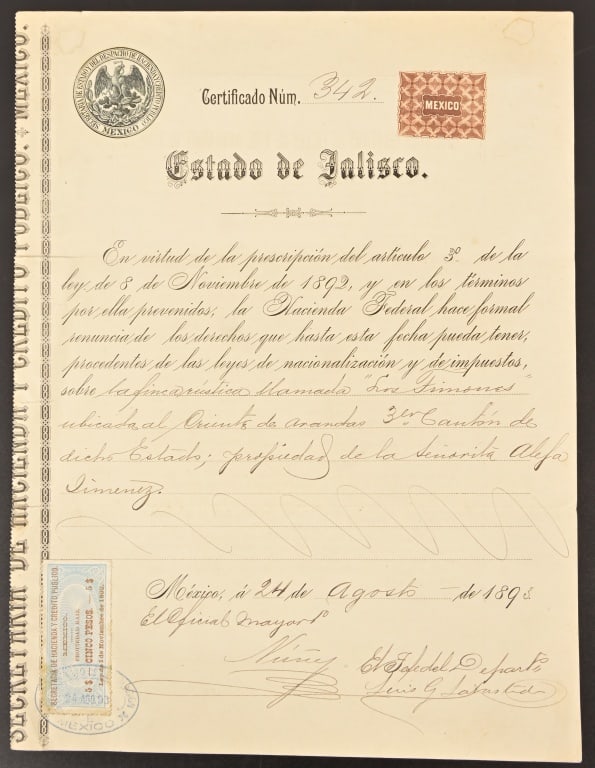 SECRETARIA DE ESTADO Y DEL DESPACHO DE HACIENDA Y CREDITO PUBLICO.
MEXICO
Certificado Núm. 342.
MEXICO
Estado de Jalisco.
En virtud de la prescripción del artículo 3º de la
ley de 8 de Noviembre de 1892, y en los términos
por ella prevenidos, la Hacienda Federal hace formal
renuncia de los derechos que hasta esta fecha pueda tener,
procedentes de las leyes de nacionalización y de impuestos,
sobre la finca rústica llamada "Los Timones"
ubicada al Oriente de Arandas 3er Cantón de
dicho Estado; propiedad de la Señorita
Jimenez.
México, á 24 de Agosto de 1893.
El Oficial mayor
Núñez
El Jefe del Departº
Luis G. Labastida
SECRETARIA DE HACIENDA Y CREDITO PUBLICO. MEXICO.
SECRETARIA DE HACIENDA Y CREDITO PUBLICO.
MEXICO.
PROPIEDAD RAIZ.
5 $ CINCO PESOS. 5 $
Ley de 8 de Noviembre de 1892.
24 AGO 93
MEXICO